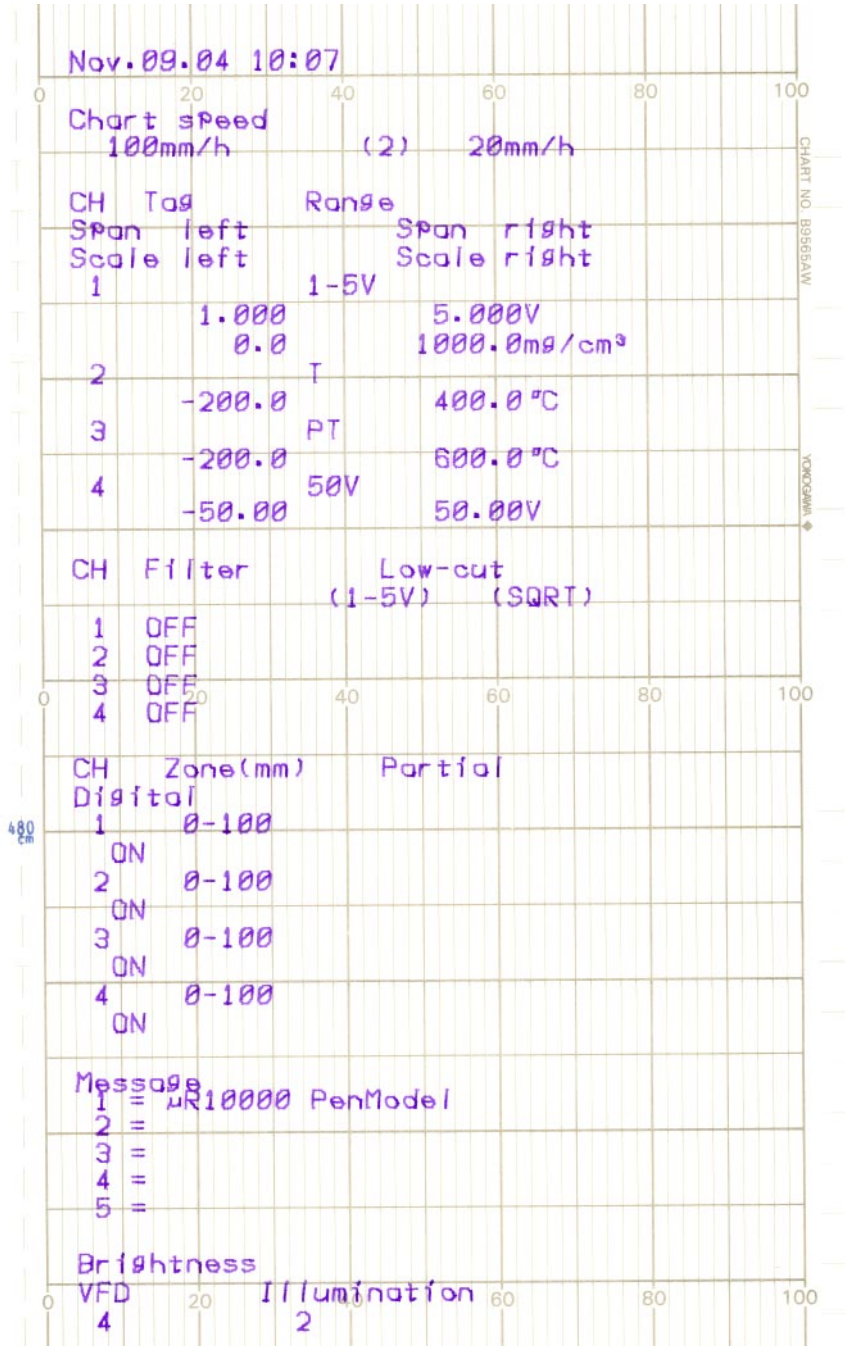 Nov.09.04 10:07
0 20 40 60 80 100
Chart speed
100mm/h (2) 20mm/h
CHART NO. B9565AW
CH Tag Range
Span left Span right
Scale left Scale right
1 1-5V
1.000 5.000V
0.0 1000.0mg/cm³
2 T
-200.0 400.0°C
3 PT
-200.0 600.0°C
YOKOGAWA
4 50V
-50.00 50.00V
CH Filter Low-cut
(1-5V) (SQRT)
1 OFF
2 OFF
3 OFF
0 20 40 60 80 100
4 OFF
CH Zone(mm) Partial
Digital
480
cm
1 0-100
ON
2 0-100
ON
3 0-100
ON
4 0-100
ON
Message
1 = µR10000 PenModel
2 =
3 =
4 =
5 =
Brightness
VFD Illumination
0 20 40 60 80 100
4 2